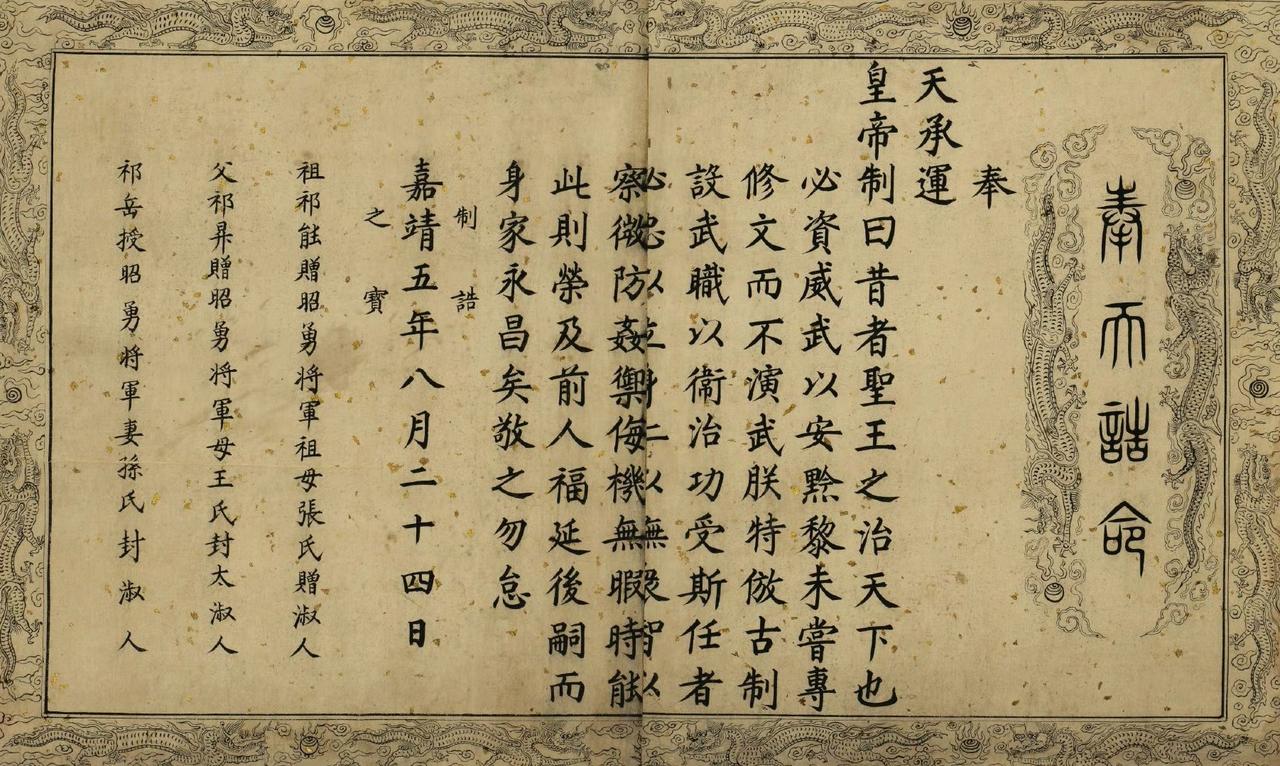 奉天誥命
奉
天承運
皇帝制曰昔者聖王之治天下也
必資威武以安黔黎未嘗專
修文而不演武朕特倣古制
設武職以衛治功受斯任者
必忠以立身仁以智以
察微防姦禦侮機無暇時能
此則榮及前人福延後嗣而
身家永昌矣敬之勿怠
制誥
嘉靖五年八月二十四日
之寶
祖祁能贈昭勇將軍祖母張氏贈淑人
父祁昇贈昭勇將軍母王氏封太淑人
祁岳授昭勇將軍妻孫氏封淑人